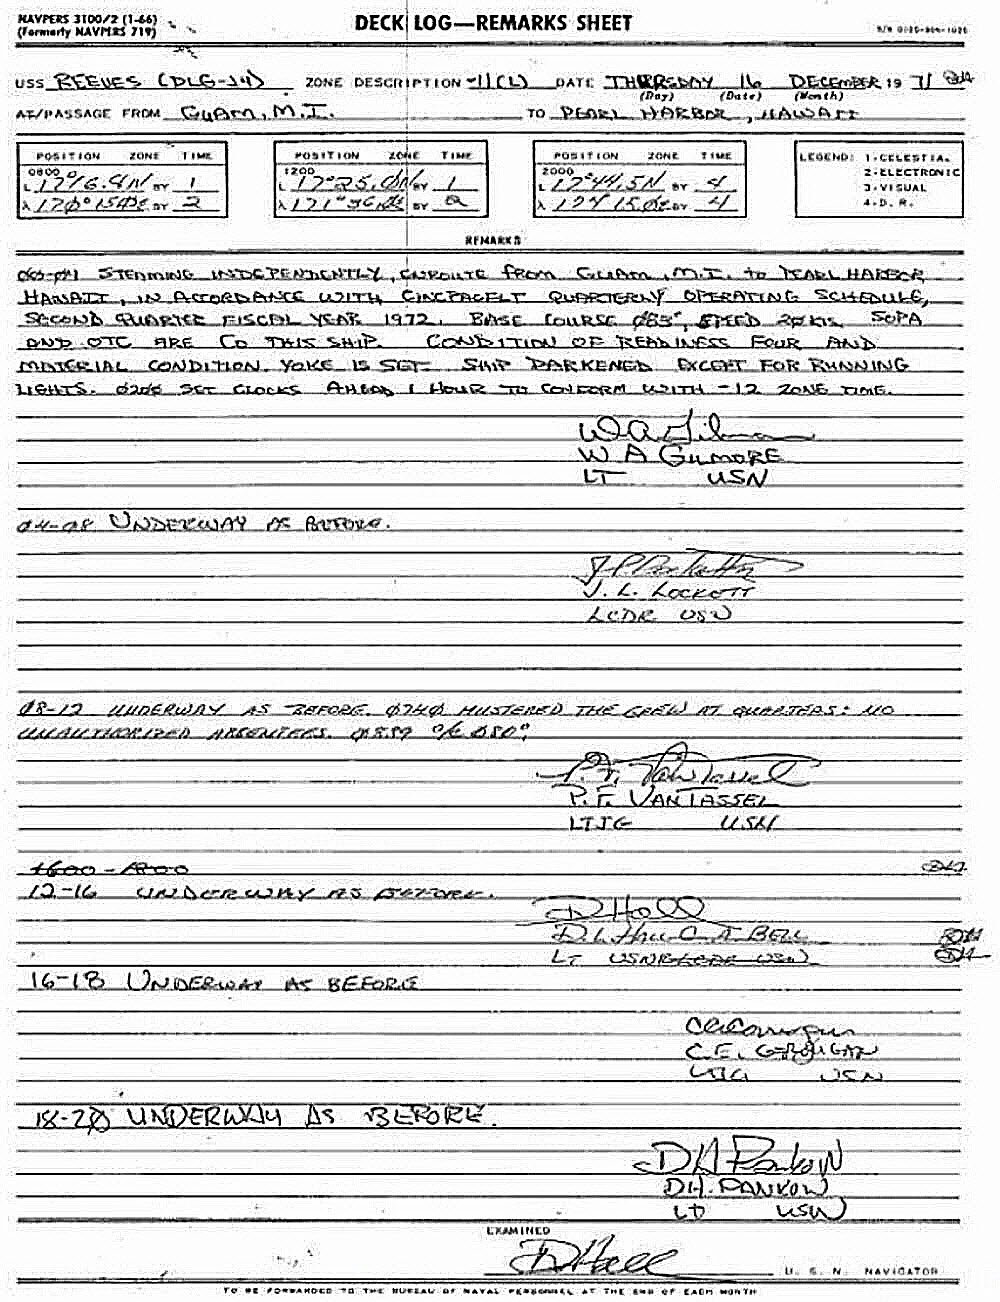 NAVPERS 3100/2 (1-66)
(Formerly NAVPERS 719)
DECK LOG—REMARKS SHEET
USS REEVES (DLG-24) ZONE DESCRIPTION -11(L) DATE THURSDAY 16 DECEMBER 19 71
(Day) (Date) (Month)
AT/PASSAGE FROM GUAM, M.I. TO PEARL HARBOR, HAWAII
POSITION ZONE TIME
0800
L 17°16.4N BY 1
λ 170°15.0E BY 2
POSITION ZONE TIME
1200
L 17°25.0N BY 1
λ 171°36.0E BY 2
POSITION ZONE TIME
2000
L 17°44.5N BY 4
λ 174 15.0E BY 4
LEGEND: 1-CELESTIAL
2-ELECTRONIC
3-VISUAL
4-D. R.
REMARKS
00-04 STEAMING INDEPENDENTLY, ENROUTE from GUAM, M.I. to PEARL HARBOR,
HAWAII, IN ACCORDANCE WITH CINCPACFLT QUARTERLY OPERATING SCHEDULE,
SECOND QUARTER FISCAL YEAR 1972. BASE COURSE 083°, SPEED 20 KTS. SOPA
AND OTC ARE CO THIS SHIP. CONDITION OF READINESS FOUR AND
MATERIAL CONDITION YOKE IS SET. SHIP DARKENED EXCEPT FOR RUNNING
LIGHTS. 0200 SET CLOCKS AHEAD 1 HOUR TO CONFORM WITH -12 ZONE TIME.
W A Gilmore
W A GILMORE
LT USN
04-08 UNDERWAY AS BEFORE.
J. L. LOCKETT
LCDR USN
08-12 UNDERWAY AS BEFORE. 0740 MUSTERED THE CREW AT QUARTERS: NO
UNAUTHORIZED ABSENTEES. 0859 C/C 080°.
P. F. VanTassel
P. F. VANTASSEL
LTJG USN
1600-1800
12-16 UNDERWAY AS BEFORE.
D Hall
D. L. Hall BELL
LT USNR LCDR USN
16-18 UNDERWAY AS BEFORE
C.E.
LTJG USN
18-20 UNDERWAY AS BEFORE.
D H Pankow
D.H. PANKOW
LT USN
EXAMINED
D Hall
U. S. N. NAVIGATOR
TO BE FORWARDED TO THE BUREAU OF NAVAL PERSONNEL AT THE END OF EACH MONTH